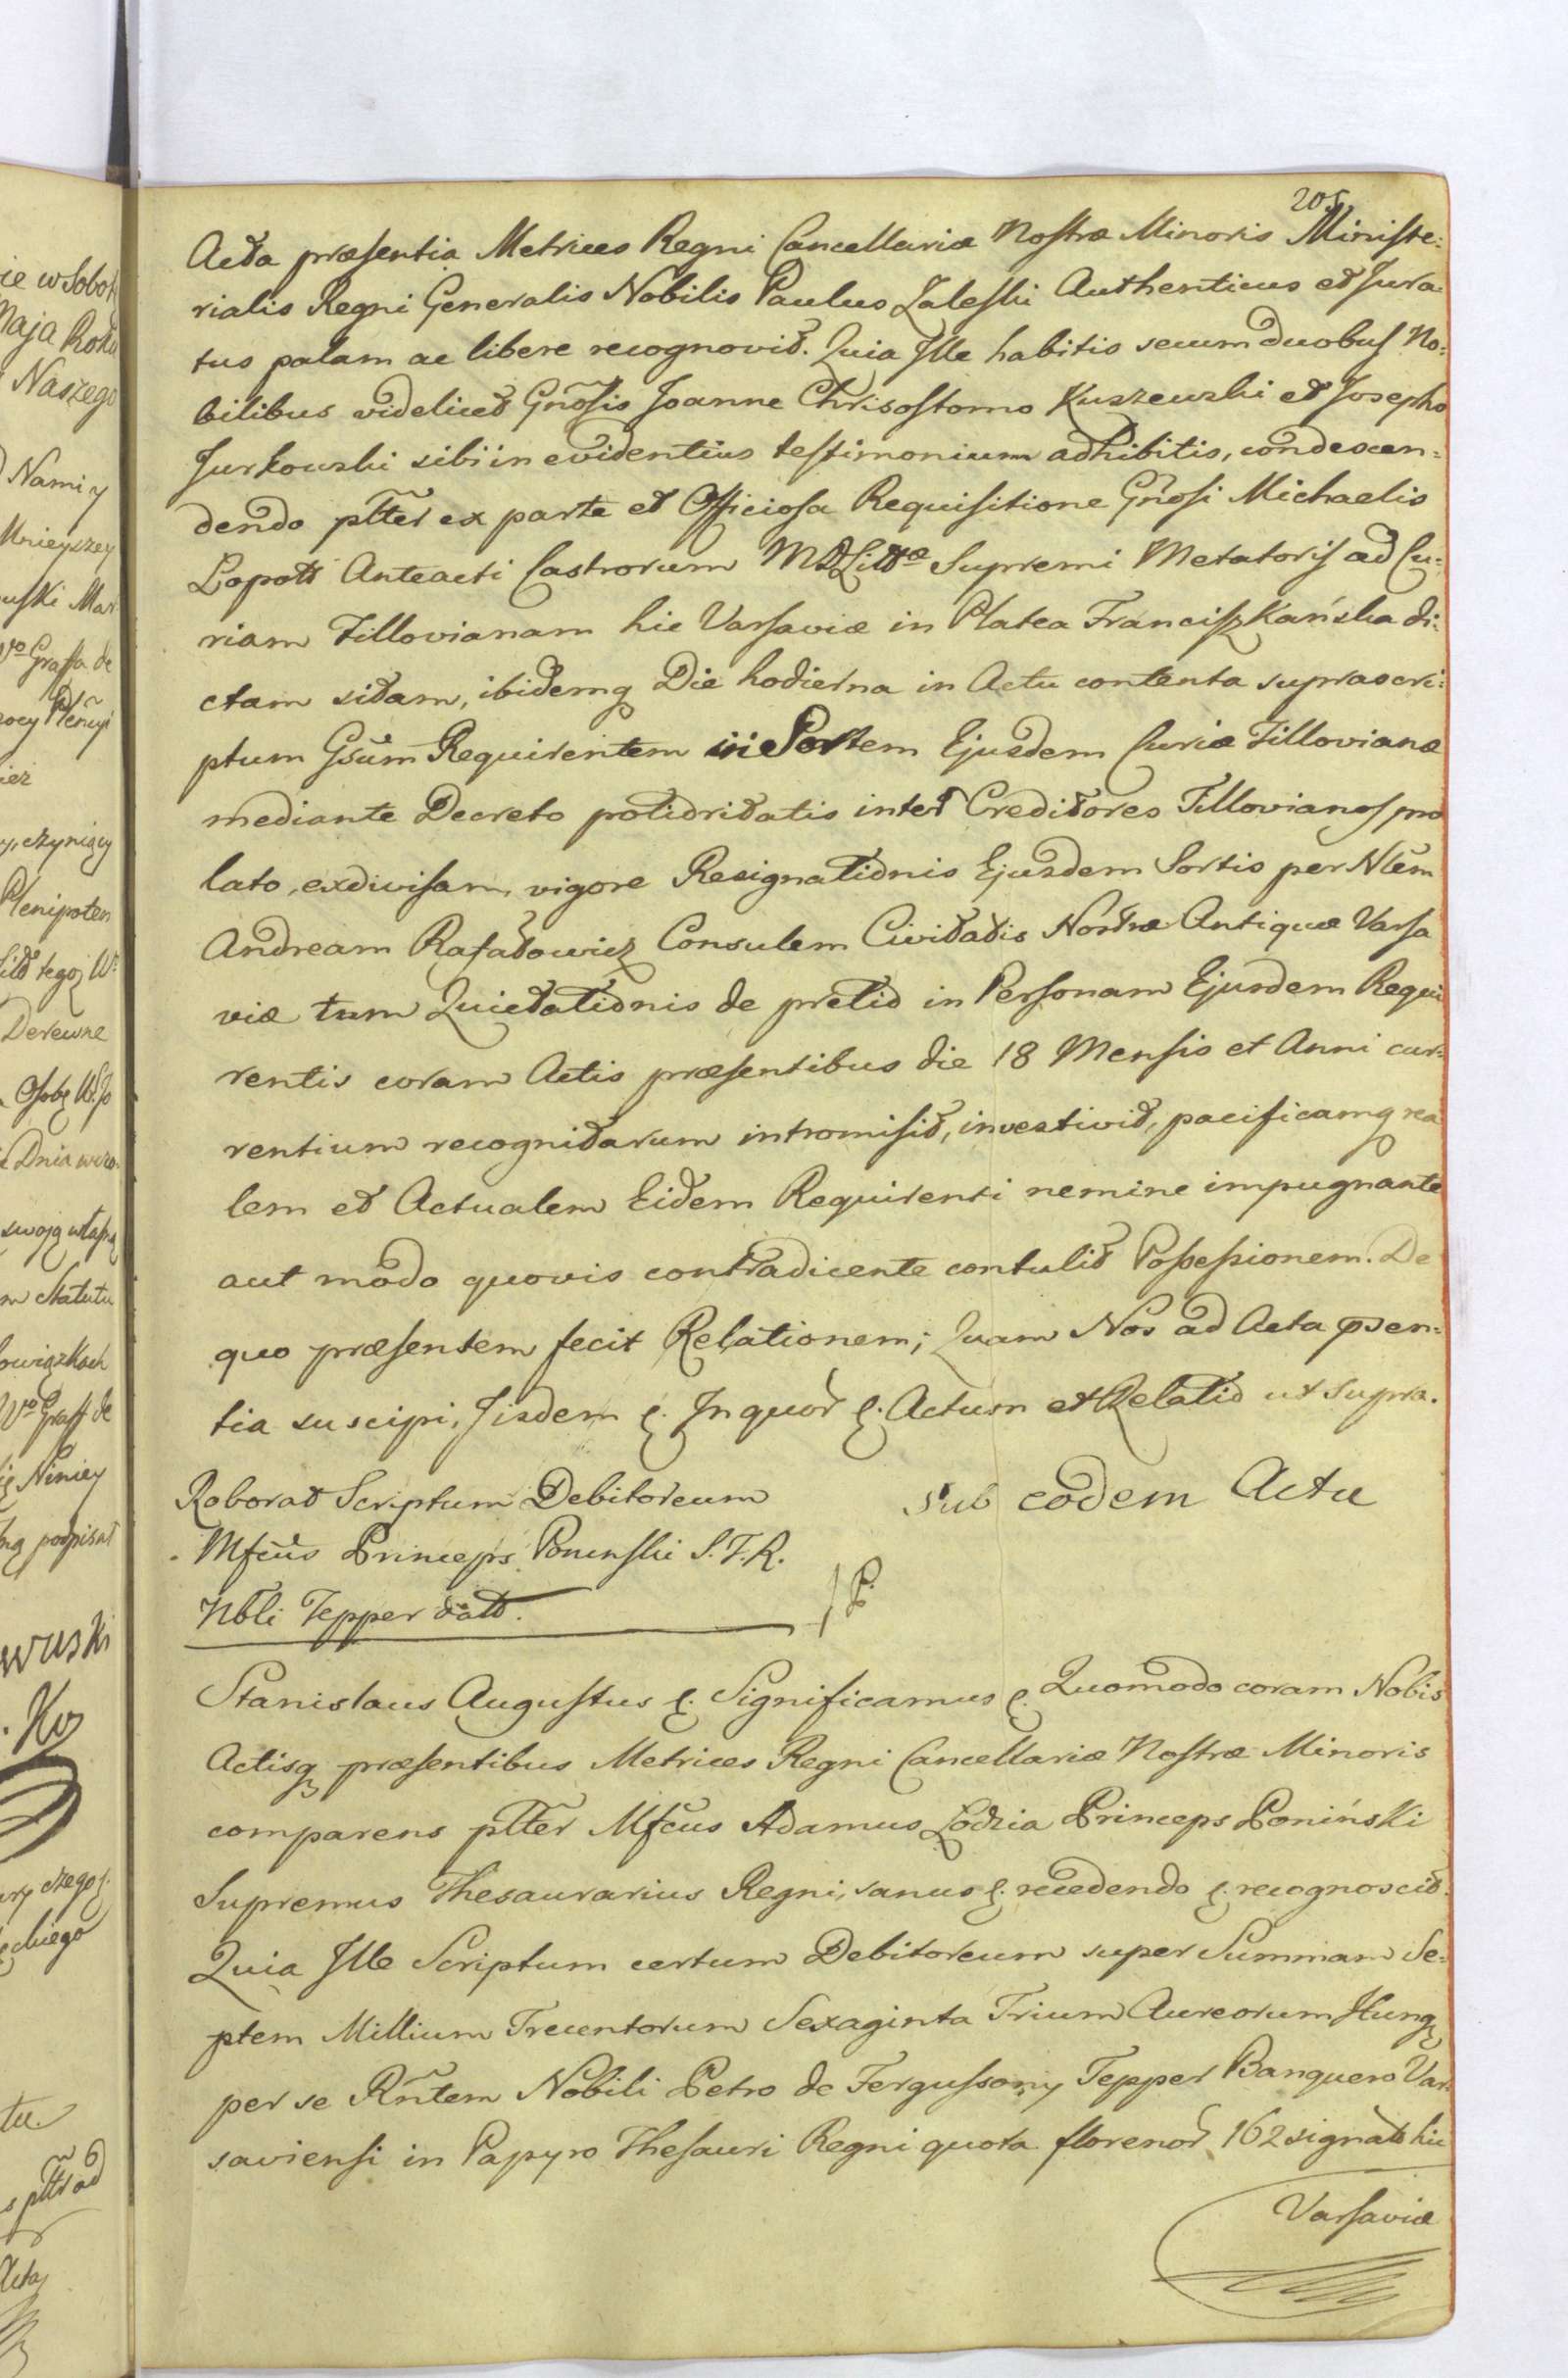 205
Acta præsentia Metrices Regni Cancellariæ Nostræ Minoris Ministe:
rialis Regni Generalis Nobilis Paulus Zaleski Authenticus et Jura:
tus palam ac libere recognovit. Quia Ille habitis secum duobus No:
bilibus videlicet Gñosis Joanne Chrisostomo Kuszewski et Josepho
Jurkowski sibi in evidentius testimonium adhibitis, condescen:
dendo pltter ex parte et Officiosa Requisitione Gñosi Michaelis
Lopott Anteacti Castrorum M D Littæ Supremi Metatoris ad Cu:
riam Tillovianam hic Varsaviæ in Platea Franciszkańska di:
ctam sitam, ibidemq Die hodierna in Actu contenta suprascri:
ptum Gsum Requirentem in Sortem Ejusdem Curiæ Tillovianæ
mediante Decreto potioritatis inter Creditores Tillovianos pro
lato, exdivisam, vigore Resignationis Ejusdem Sortis per Nlem
Andream Rafałowicz Consulem Civitatis Nostræ Antiquæ Varsa
viæ tum Quietationis de pretio in Personam Ejusdem Requi
rentis coram Actis præsentibus die 18 Mensis et Anni cur:
rentium recognitarum intromisit, investivit, pacificamq rea
lem et Actualem Eidem Requirenti nemine impugnante
aut modo quovis contradicente contulit Possessionem. De
quo præsentem fecit Relationem; Quam Nos ad Acta psen:
tia suscipi, Iisdem &. In quor &. Actum et Relatio ut supra.
Roborat Scriptum Debitoreum
Mfcus Princeps Poninski S.T.R.
Nbli Tepper datt.
Sub eodem Actu
Stanislaus Augustus &. Significamus &. Quomodo coram Nobis
Actisq præsentibus Metrices Regni Cancellariæ Nostræ Minoris
comparens pltter Mfcus Adamus Łodzia Princeps Poniński
Supremus Thesaurarius Regni, sanus &. recedendo &. recognoscit.
Quia Ille Scriptum certum Debitoreum super Summam Se:
ptem Millium Trecentorum Sexaginta Trium Aureorum Hung
per se Rñtem Nobili Petro de Fergussony Tepper Banquero Var:
saviensi in Papyro Thesauri Regni quota florenor 162 signato hic
Varsaviæ